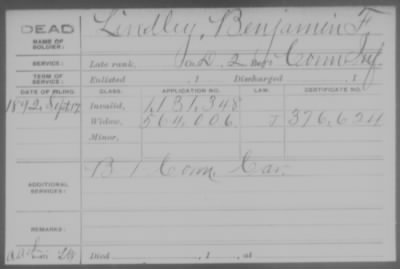 DEAD
NAME OF SOLDIER: Lindley, Benjamin F,
SERVICE: Late rank, D, 2 Conn Inf.
TERM OF SERVICE: Enlisted , 1 Discharged , 1
DATE OF FILING. CLASS. APPLICATION NO. LAW. CERTIFICATE NO.
1892, Sept 17 Invalid, 1,131,348
Widow, 564,006 376,624
Minor,
B 1 Conn. Cav.
ADDITIONAL SERVICES:
REMARKS:
Died , 1 , at